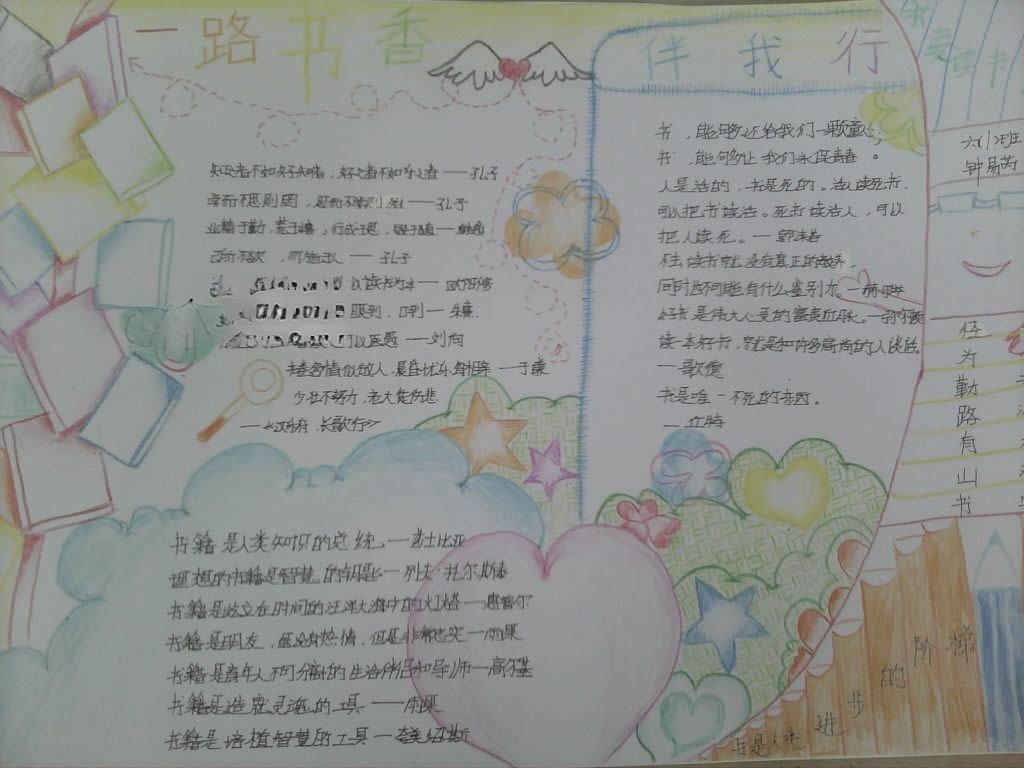 一路书香
伴我行
知之者不如好之者，好之者不如乐之者——孔子
学而不思则罔，思而不学则殆——孔子
业精于勤，荒于嬉，行成于思，毁于随——韩愈
己所不欲，勿施于人——孔子
以读书为本——欧阳修
眼到，口到——朱熹
可以医愚——刘向
书卷多情似故人，晨昏忧乐每相亲——于谦
少壮不努力，老大徒伤悲
——《汉乐府·长歌行》
书，能够还给我们一颗童心；
书，能够让我们永保青春。
人是活的，书是死的。活人读死书，
可以把书读活。死书读活人，可以
把人读死。——郭沫若
不去读书就没有真正的教养，
同时也不可能有什么鉴别力。——赫尔岑
好书是伟大心灵的富贵血脉。——弥尔顿
读一本好书，就是和许多高尚的人谈话。
——歌德
书是唯一不死的东西。
书籍是人类知识的总统——莎士比亚
理想的书籍是智慧的钥匙——列夫·托尔斯泰
书籍是屹立在时间的汪洋大海中的灯塔——惠普尔
书籍是朋友，虽没有热情，但是非常忠实——雨果
书籍是青年人不可分离的生活伴侣和导师——高尔基
书籍是造就灵魂的工具——雨果
书籍是培植智慧的工具——夸美绍斯
爱读书
六(1)班
径为勤路有山书
书是人类进步的阶梯